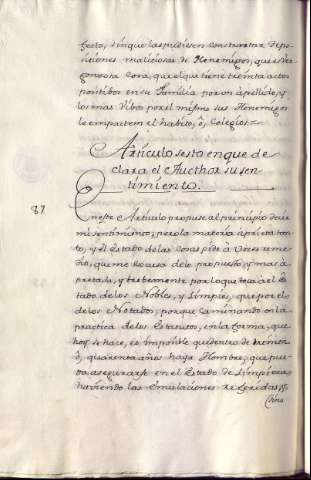 fecto, sin que las pudiesen contrarrestar depo-
siciones maliciosas de Henemigos, que es ver-
gonzosa cosa, que el que tiene treinta actos
positibos en su familia por un apellido, y
los mas vibos por el mismo sus Henemigos
le empaten el habito, ô, Colegio.
Articulo sesto en que de
clara el Aucthor su sen-
timiento.
87
En este Articulo propuse al principio decir
mi sentimiento, pero la materia aprieta tan-
to, y el Estado de las Cosas pide â Dios reme-
dio, que me escusa de lo propuesto, y mas a-
pretada, y trebemente por lo que toca al Es
tado de los Nobles, y Limpios, que por el
de los Notados, porque caminando en la
practica de los Estatutos, en la forma, que
hoy se hace, es imposible que dentro de treinta
ô, quarenta años haya Hombre, que pue-
da asegurarse en el Estado de Limpieza,
habiendo las Emulaciones referidas, y